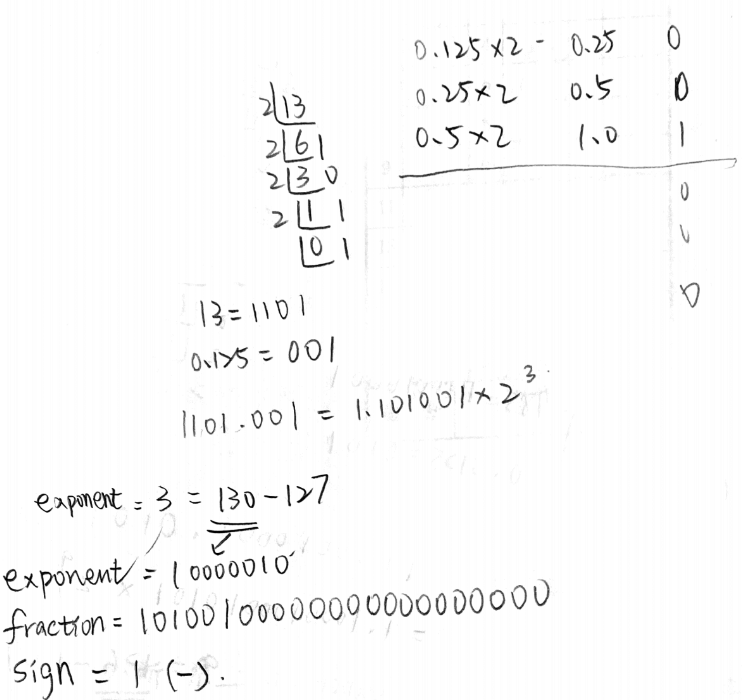 0.125×2 - 0.25 0
0.25×2 0.5 0
0.5×2 1.0 1
0
0
0
2 13
2 6 1
2 3 0
2 1 1
0 1
13 = 1101
0.125 = 001
1101.001 = 1.101001 × 2^3
exponent = 3 = 130 - 127
exponent = 10000010
fraction = 10100100000000000000000
sign = 1 (-).